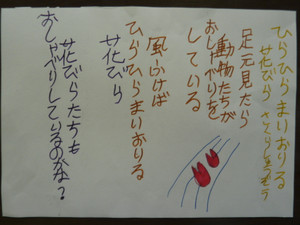 ひらひらまいおりる
花びら さくらしょうぞう
足元見たら
動物たちが
おしゃべりを
している
風ふけば
ひらひらまいおりる
花びら
花びらたちも
おしゃべりしているのかな？